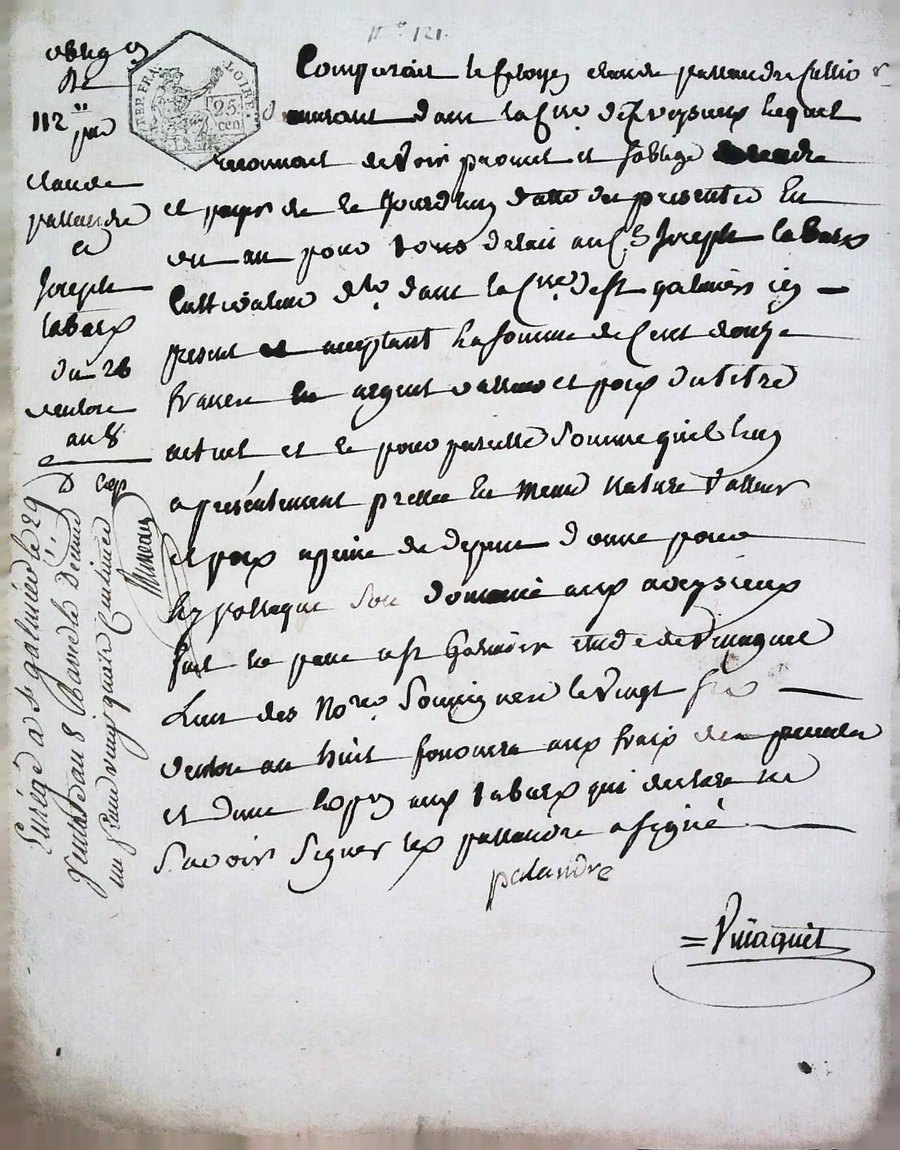 N° 121.
oblig on
De
112 ₶
par
claude
pallandre
a
Joseph
labaux
du 26
ventose
an 8
LOIRE
25
cen
Comparait le citoyen claude pallandre Cultiv r
demeurant dans la C ne d'Aveysieux lequel
reconnait devoir promet et s'oblige rendre
et payer de ce jourdhuy datte des presentes En
un an pour tous delais au C. Joseph labaux
Cultivateur dans la C ne de st galmier icy
present et acceptant la somme de Cent douze
francs en argent valleur et poix du titre
actuel et ce pour pareille somme quil luy
a présentement prettée En meme nature valleur
et poix a peine de depens donne pour
hypotteque son domaine aux aveysieux
fait et passé a st Galmier etude de Vinaquet
L'un des No res Soussignés le vingt six
ventose an huit aux frais du premier
et dont copie aux labaux qui declare ne
savoir signer led pallandre a signé
palandre
= Vinaquet
Enrégé a st galmier le 29
ventose an 8
un franc vingt quatre Centimes